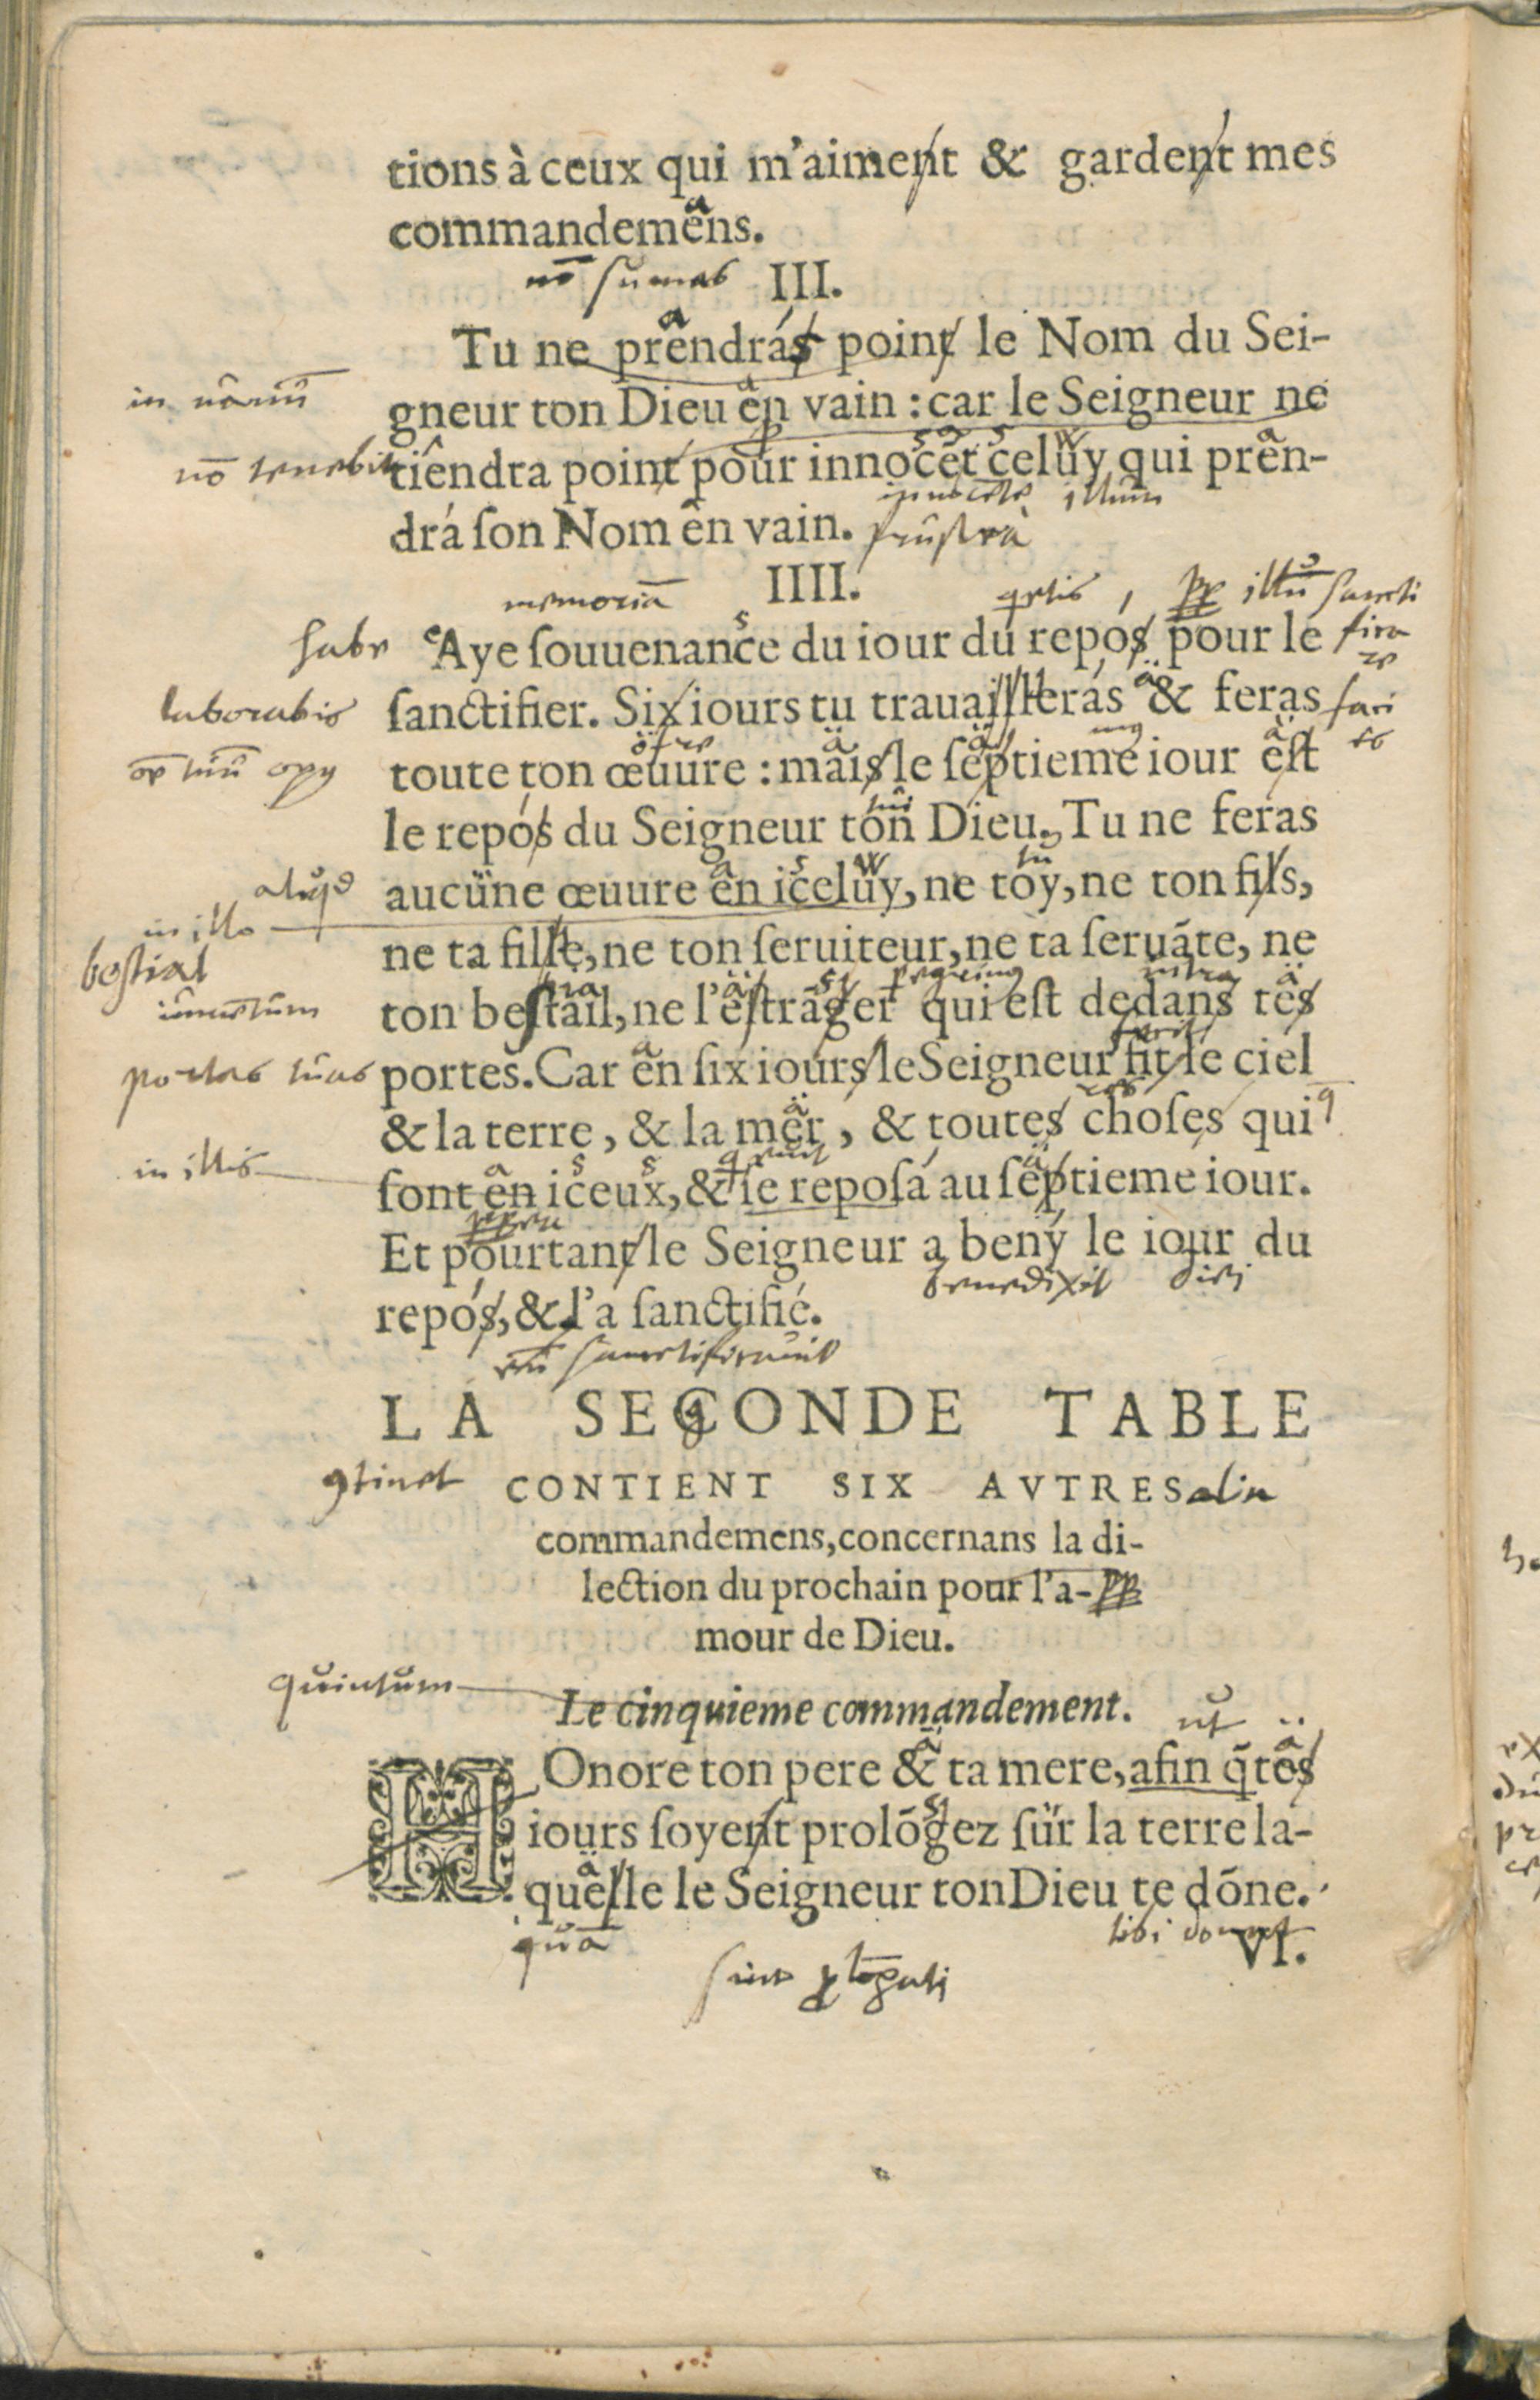 tions à ceux qui m'aiment & gardent mes
commandemens.
nō sumas III.
Tu ne prendrás point le Nom du Sei-
gneur ton Dieu en vain : car le Seigneur ne
tiendra point pour innocẽt celuy qui pren-
drá ſon Nom en vain. frustra
IIII.
memoriā
habe Aye ſouuenance du iour du repos pour le
laborabis ſanctifier. Six iours tu trauailleras & feras
toute ton œuure : mais le ſeptieme iour eſt
le repós du Seigneur ton Dieu. Tu ne feras
aucune œuure en iceluy, ne toy, ne ton fils,
in illo
ne ta fille, ne ton ſeruiteur, ne ta ſeruãte, ne
bestial
ton beſtail, ne l'eſtrãger qui eſt dedans tes
portas tuas portes. Car en ſix iours le Seigneur fit le ciel
& la terre, & la mer, & toutes choſes qui
in illis ſont en iceux, & ſe repoſa au ſeptieme iour.
Et pourtant le Seigneur a beny le iour du
benedixit diei
repós, & l'a ſanctifié.
LA SECONDE TABLE
CONTIENT SIX AVTRES alia
commandemens, concernans la di-
lection du prochain pour l'a-
mour de Dieu.
quintum Le cinquieme commandement.
ut
HOnore ton pere & ta mere, afin q̃ tes
iours ſoyent prolõgez ſur la terre la-
quelle le Seigneur ton Dieu te dõne.
quā tibi donat
VI.